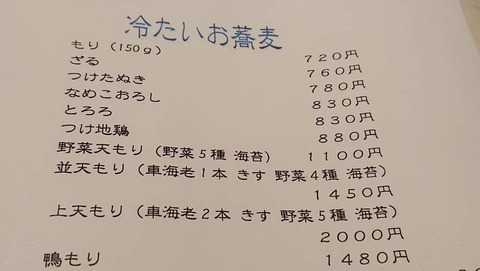 冷たいお蕎麦
もり（150ｇ） 720円
ざる 760円
つけたぬき 780円
なめこおろし 830円
とろろ 830円
つけ地鶏 880円
野菜天もり（野菜５種 海苔） 1100円
並天もり（車海老１本 きす 野菜４種 海苔）
1450円
上天もり（車海老２本 きす 野菜５種 海苔）
2000円
鴨もり 1480円